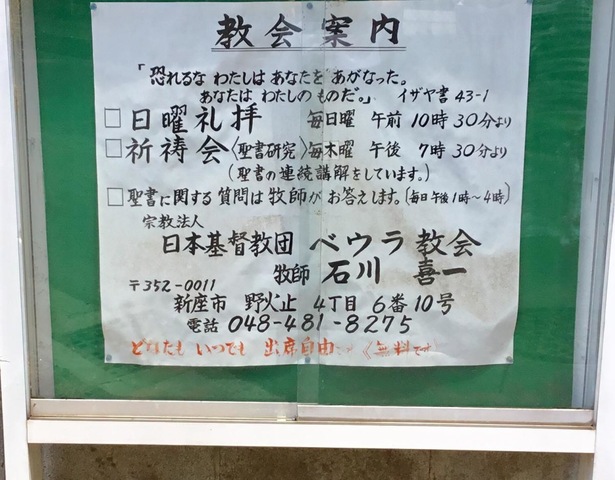 教会案内
「恐れるな わたしは あなたを あがなった。
あなたは わたしのものだ。」 イザヤ書 43-1
□日曜礼拝 毎日曜 午前 10時30分より
□祈祷会〈聖書研究〉毎木曜 午後 7時30分より
(聖書の連続講解をしています。)
□聖書に関する質問は牧師がお答えします。(毎日午後1時~4時)
宗教法人
日本基督教団 ベウラ教会
牧師 石川 喜一
〒352-0011
新座市 野火止 4丁目 6番10号
電話 048-481-8275
どなたも いつでも 出席自由です〈無料です〉